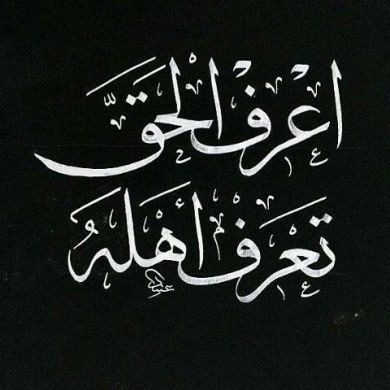 اعرف الحقَّ
تعرف أهلهُ